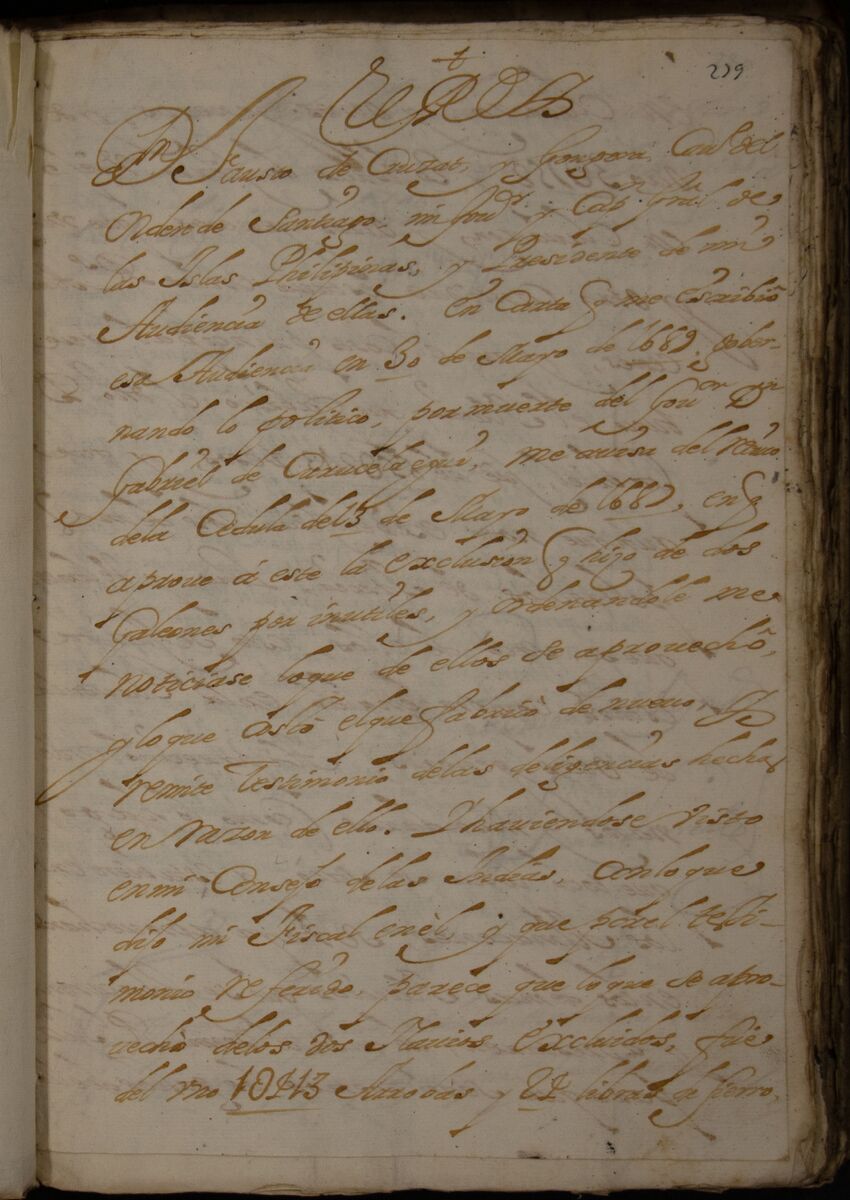 279
+
El Rey
Dn. Fausto de Cruzat, y Gongora, Cauº. del
Orden de Santiago, mi Gouºr. y Capn. Gral. de
las Islas Philipinas, y Presidente de mi
Audiencia de ellas. En Carta q me escribiò
esa Audiencia en 30 de Mayo de 1689, gober-
nando lo politico, por muerte del Gouor. Dn.
Gabriel de Curucelaegui, me auisa del reciuo
dela Cedula del 13 de Mayo de 1687, en q
aproue á este la exclusion q hizo de dos
Galeones por inutiles, y ordenandole me
noticiase loque de ellos se aprouechó,
y lo que costó elque fabricò de nueuo, y
remite Testimonio delas deligencias hechas
en razon de ello. Y hauiendose visto
enmi Consejo delas Indias, conloque
dijo mi Fiscal enèl, y que por el testi-
monio referido, parece que loque se apro-
uechò delos dos Nauios excluidos, fue
del vno 10413 Arrobas y 21 libras de fierro,